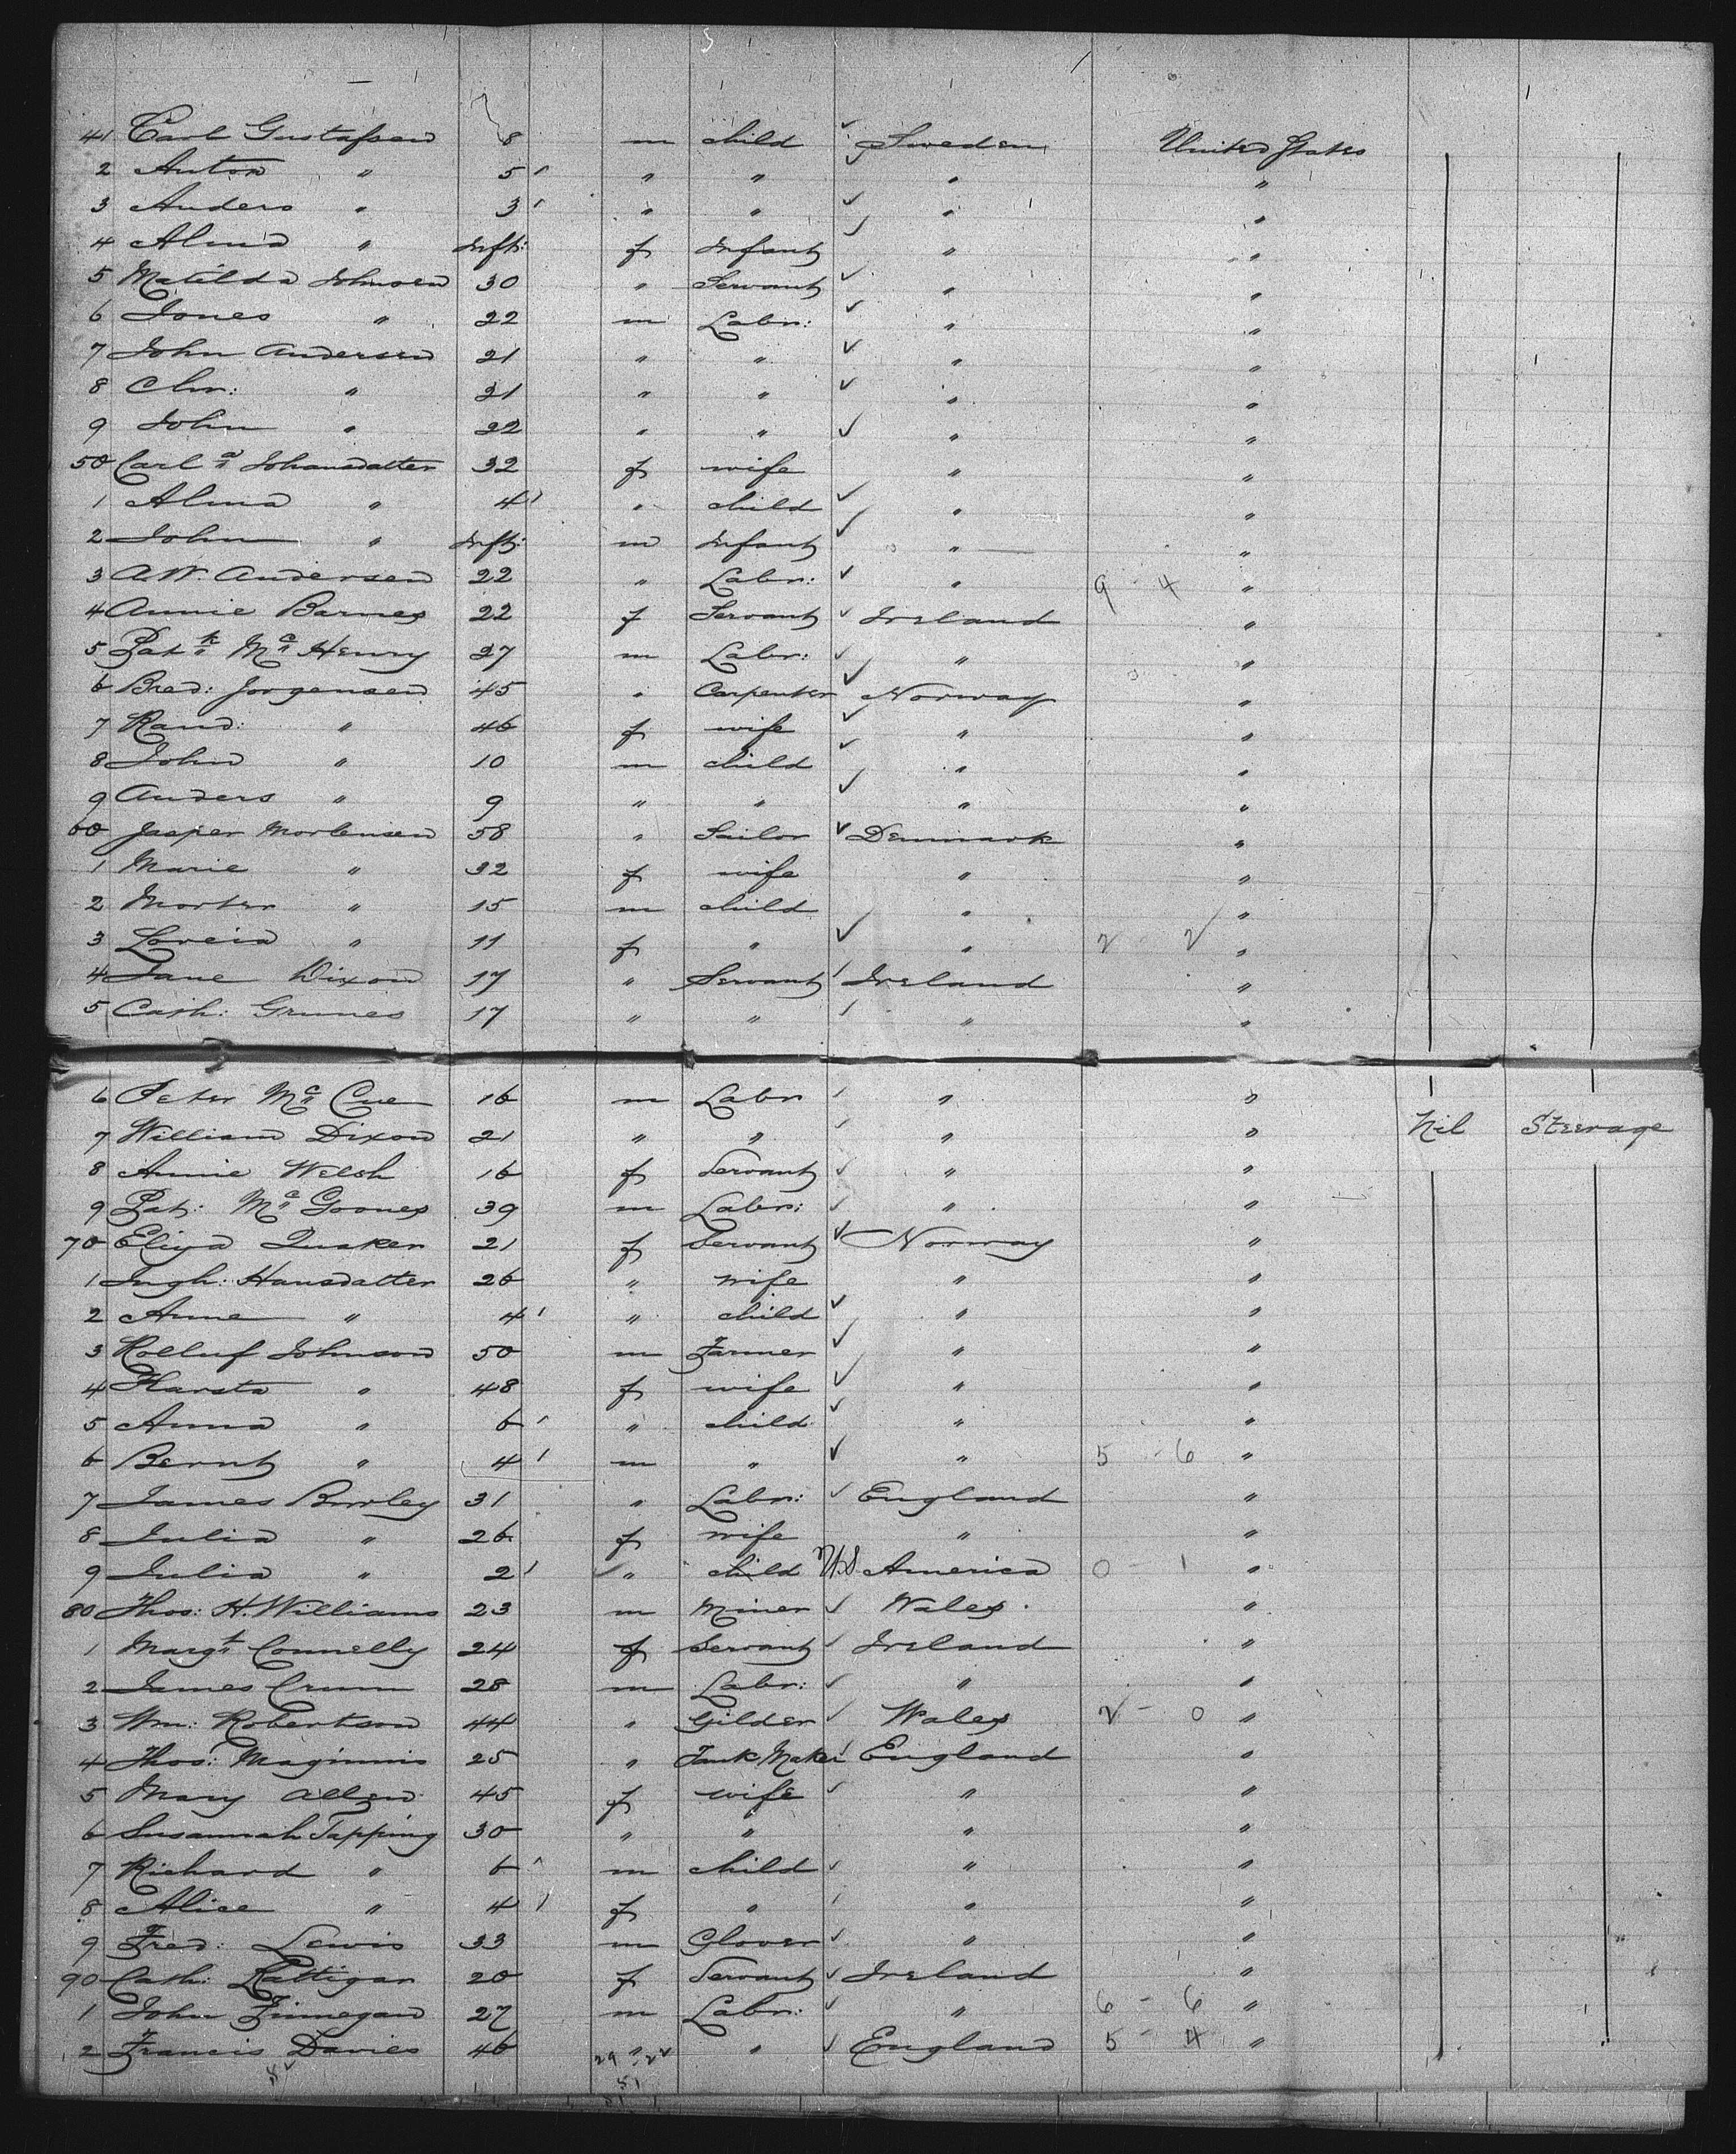 41 Carl Gustafsen 8 m child Sweden United States
2 Anton " 5 " " " "
3 Anders " 3 " " " "
4 Alma " Inft: f Infant " "
5 Matilda Johnsen 30 " Servant " "
6 Jones " 22 m Labr: " "
7 John Andersen 21 " " " "
8 Chr: " 21 " " " "
9 John " 22 " " " "
50 Carl a Johansdatter 32 f wife " "
1 Alma " 4 " child " "
2 John " Inft: m Infant " "
3 A.W. Andersen 22 " Labr: " 9 - 4 "
4 Annie Barnes 22 f Servant Ireland "
5 Patk Mc Henry 27 m Labr: " "
6 Bred: Jorgensen 45 " Carpenter Norway "
7 Rand: " 46 f wife " "
8 John " 10 m child " "
9 Anders " 9 " " " "
60 Jasper Mortensen 58 " Sailor Denmark "
1 Marie " 32 f wife " "
2 Morten " 15 m child " "
3 " 11 f " " 2 - 2 "
4 Jane Dixon 17 " Servant Ireland "
5 Cath: Grunes 17 " " " "
6 Peter Mc Cue 16 m Labr " "
7 William Dixon 21 " " " " Nil Steerage
8 Annie Welsh 16 f Servant " "
9 Pat: Mc Goones 39 m Labr: " "
70 Eliza Quaker 21 f Servant Norway "
1 Ingh: Hansdatter 26 " wife " "
2 Anne " 4 " child " "
3 Rolluf Johnson 50 m Farmer " "
4 Harsta " 48 f wife " "
5 Anna " 6 " child " "
6 Bernt " 4 m " " 5 - 6 "
7 James Bowley 31 " Labr: England "
8 Julia " 26 f wife " "
9 Julia " 2 " child U.S. America 0 - 1 "
80 Thos: H. Williams 23 m Miner Wales "
1 Margt Connelly 24 f Servant Ireland "
2 James Crum 28 m Labr: " "
3 Wm: Robertson 44 " Gilder Wales 2 - 0 "
4 Thos: Maginnis 25 " Tank Maker England "
5 Mary Allen 45 f wife " "
6 Susannah Tapping 30 " " " "
7 Richard " 6 m child " "
8 Alice " 4 f " " "
9 Fred: Lewis 33 m Glover " "
90 Cath: Rattigan 20 f Servant Ireland "
1 John Finnegan 27 m Labr: " 6 - 6 "
2 Francis Davies 46 " " England 5 - 4 "
29 - 22
51